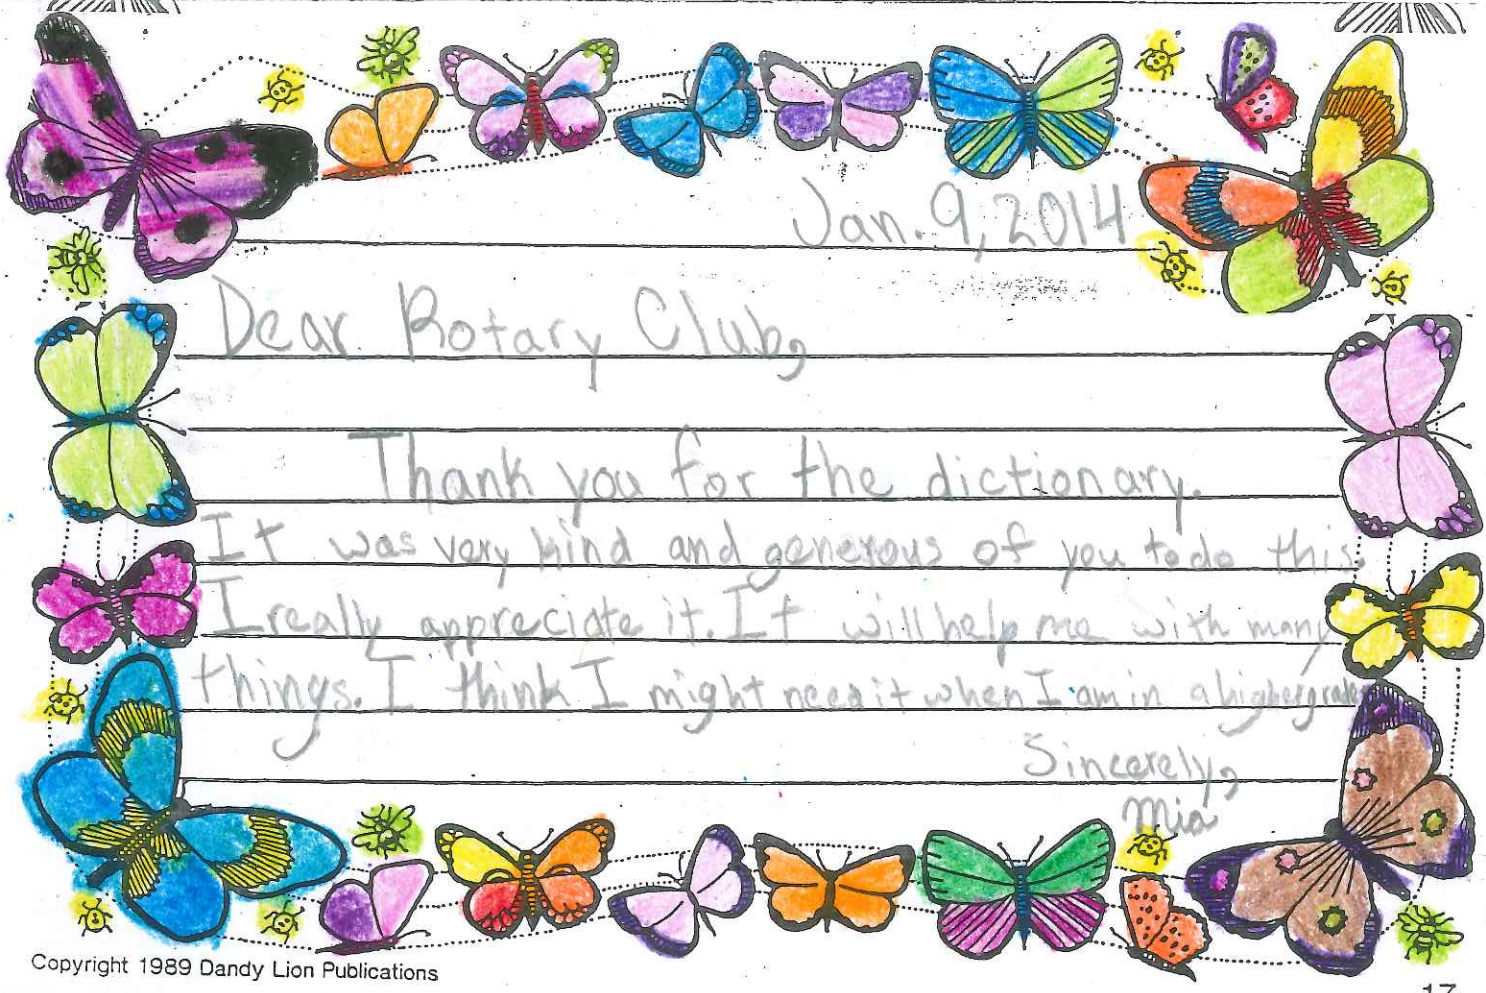 Jan. 9, 2014
Dear Rotary Club,
Thank you for the dictionary.
It was very kind and generous of you to do this.
I really appreciate it. It will help me with many
things. I think I might need it when I am in a higher grade
Sincerely,
Mia
Copyright 1989 Dandy Lion Publications
17